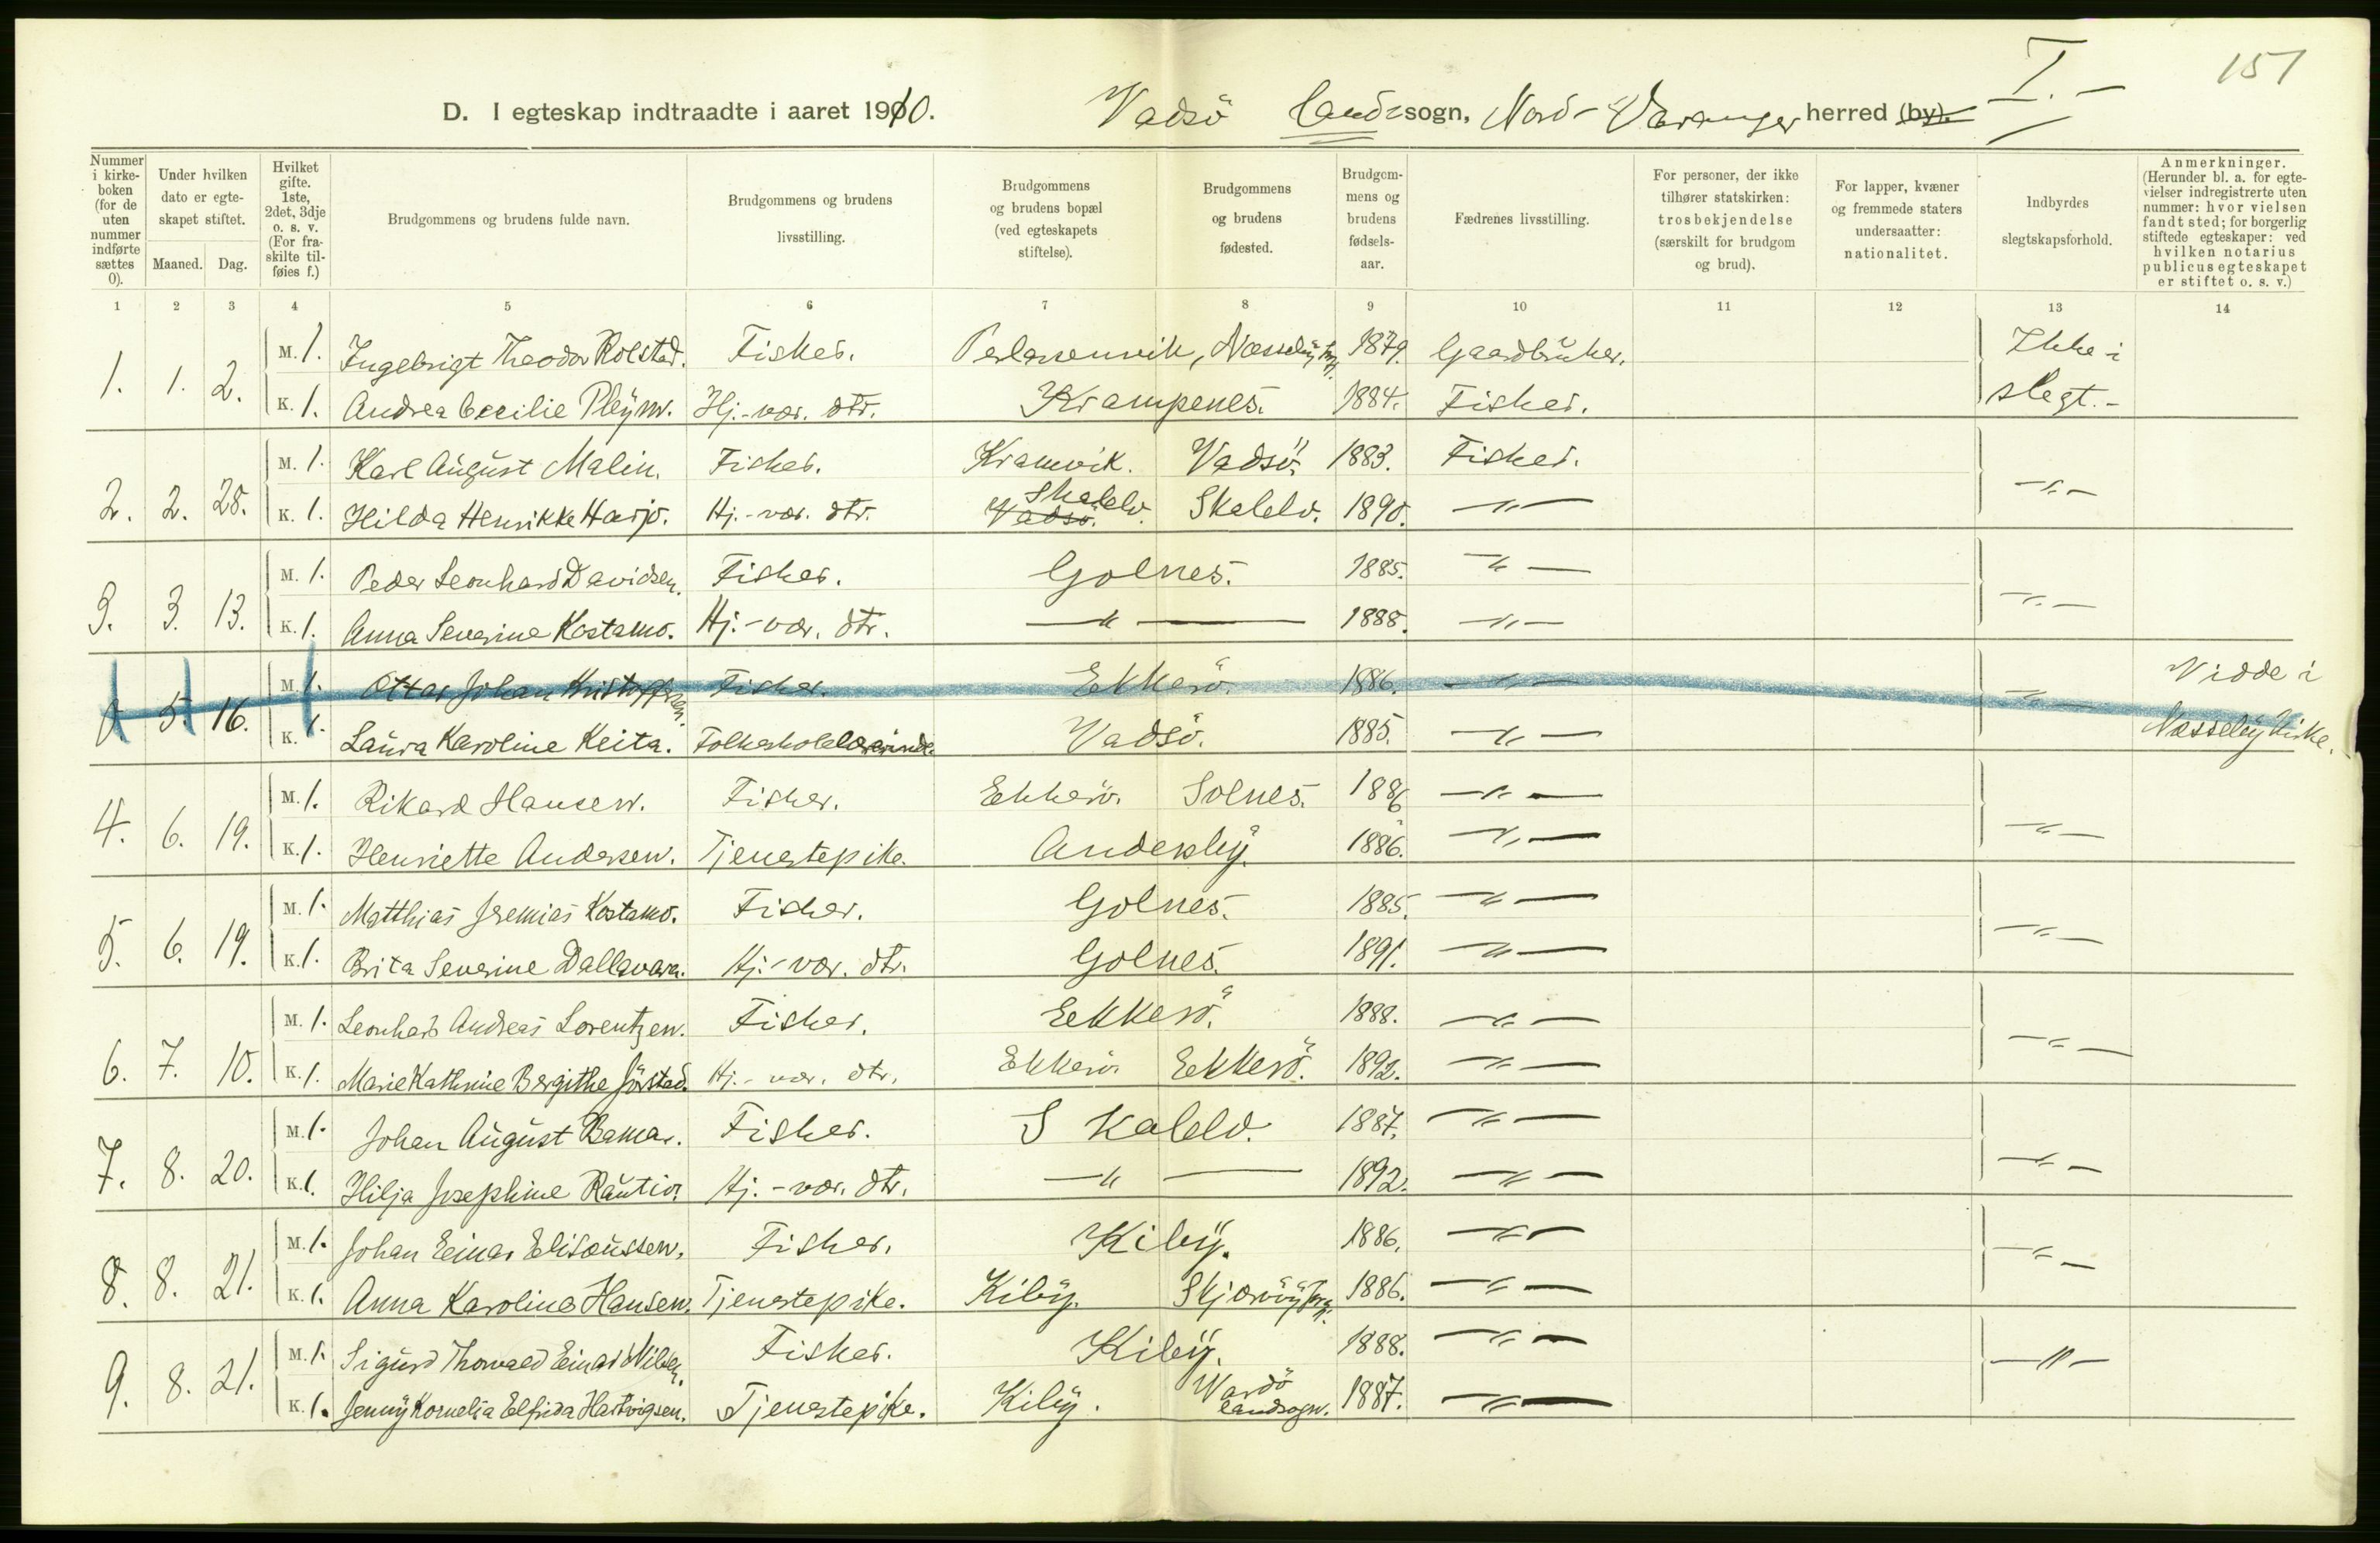 I. —
151
D. I egteskap indtraadte i aaret 1910. Vadsö landssogn, Nord-Varanger herred (by).
Nummer i kirkeboken (for de uten nummer indførte sættes 0).
Under hvilken dato er egteskapet stiftet.
Maaned. Dag.
Hvilket gifte. 1ste, 2det, 3dje o. s. v. (For fraskilte tilføies f.)
Brudgommens og brudens fulde navn.
Brudgommens og brudens livsstilling.
Brudgommens og brudens bopæl (ved egteskapets stiftelse).
Brudgommens og brudens fødested.
Brudgommens og brudens fødselsaar.
Fædrenes livsstilling.
For personer, der ikke tilhører statskirken: trosbekjendelse (særskilt for brudgom og brud).
For lapper, kvæner og fremmede staters undersaatter: nationalitet.
Indbyrdes slegtskapsforhold.
Anmerkninger. (Herunder bl. a. for egtevielser indregistrerte uten nummer: hvor vielsen fandt sted; for borgerlig stiftede egteskaper: ved hvilken notarius publicus egteskapet er stiftet o. s. v.)
1 2 3 4 5 6 7 8 9 10 11 12 13 14
1. 1. 2. M. 1. Ingebrigt Theodor Rolstad. Fisker. Nesseby 1879. Gaardbruker. Ikke i
K. 1. Andrea Cecilie Pleym. Hj.-vær. dtr. Krampenes. 1884. Fisker. slegt.-
2. 2. 28. M. 1. Karl August Malin. Fisker. Kramvik. Vadsö. 1883. Fisker.
K. 1. Hilda Henrikke Harjo. Hj.-vær. dtr. Vadsö. Skalelv. Skalelv. 1890. —"— —"—
3. 3. 13. M. 1. Peder Leonhard Davidsen. Fisker. Golnes. 1885. —"—
K. 1. Anna Severine Kostamo. Hj.-vær. dtr. —"— 1888. —"— —"—
0. 5. 16. M. 1. Ottar Johan Kristoffersen. Fisker. Ekkerö. 1886. —"— —"— Viede i
K. 1. Laura Karoline Keita. Folkeskolelærerinde. Vadsö. 1885. —"— Nesseby Kirke.
4. 6. 19. M. 1. Rikard Hansen. Fisker. Ekkerö. Golnes. 1886 —"—
K. 1. Henriette Andersen. Tjenestepike. Andersby. 1886. —"— —"—
5. 6. 19. M. 1. Matthias Jeremias Kostamo. Fisker. Golnes. 1885. —"—
K. 1. Brita Severine Dallavara. Hj.-vær. dtr. Golnes. 1891. —"— —"—
6. 7. 10. M. 1. Leonhard Andreas Lorentzen. Fisker. Eekkerö. 1888. —"—
K. 1. Marie Kathrine Bergithe Jörstad. Hj.-vær. dtr. Ekkerö. Eekkerö. 1892. —"— —"—
7. 8. 20. M. 1. Johan August Bamar. Fisker. Skalelv. 1887. —"—
K. 1. Hilja Josephine Rautio. Hj.-vær. dtr. —"— 1892. —"— —"—
8. 8. 21. M. 1. Johan Einar Elisæussen. Fisker. Kiby. 1886. —"—
K. 1. Anna Karolina Hansen. Tjenestepike. Kiby. Skjærvöy 1886. —"— —"—
9. 8. 21. M. 1. Sigurd Thorvald Einar Nilsen. Fisker. Kiby. 1888. —"—
K. 1. Jenny Kornelia Elfrida Hartvigsen. Tjenestepike. Kiby. Wardö landsogn. 1887. —"— —"—